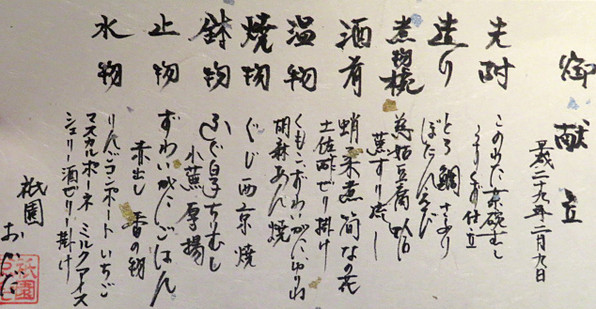 御献立
平成二十九年二月九日
先附
このわた茶碗むし
うすくず仕立
造り
とろ 鯛 さより
ぼたんえび
煮物椀
慈姑豆腐 蛤
蕪すり流し
酒肴
蛸柔煮 筍 なの花
土佐酢ゼリ掛け
温物
くもこ ずわいがに ゆりね
胡麻あん焼
焼物
ぐじ 西京焼
鉢物
ふぐ白子ちりむし
小蕪 厚揚
止物
ずわいがにごはん
赤出し 香の物
水物
りんごコンポート いちご
マスカルポーネ ミルクアイス
シェリー酒ゼリー掛け
祇園 おかだ